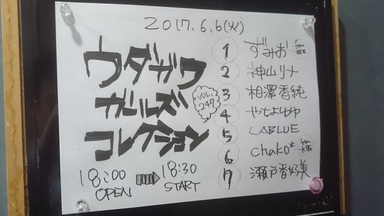 2017.6.6(火)
ウダガワ
ガールズ
コレクション
VOL.
247
18:00 ⇒ 18:30
OPEN START
1 ずみお
2 神山リナ
3 相澤香純
4 やなせゆゆ
5 LABLUE
6 chako*
7 瀬戸香好美